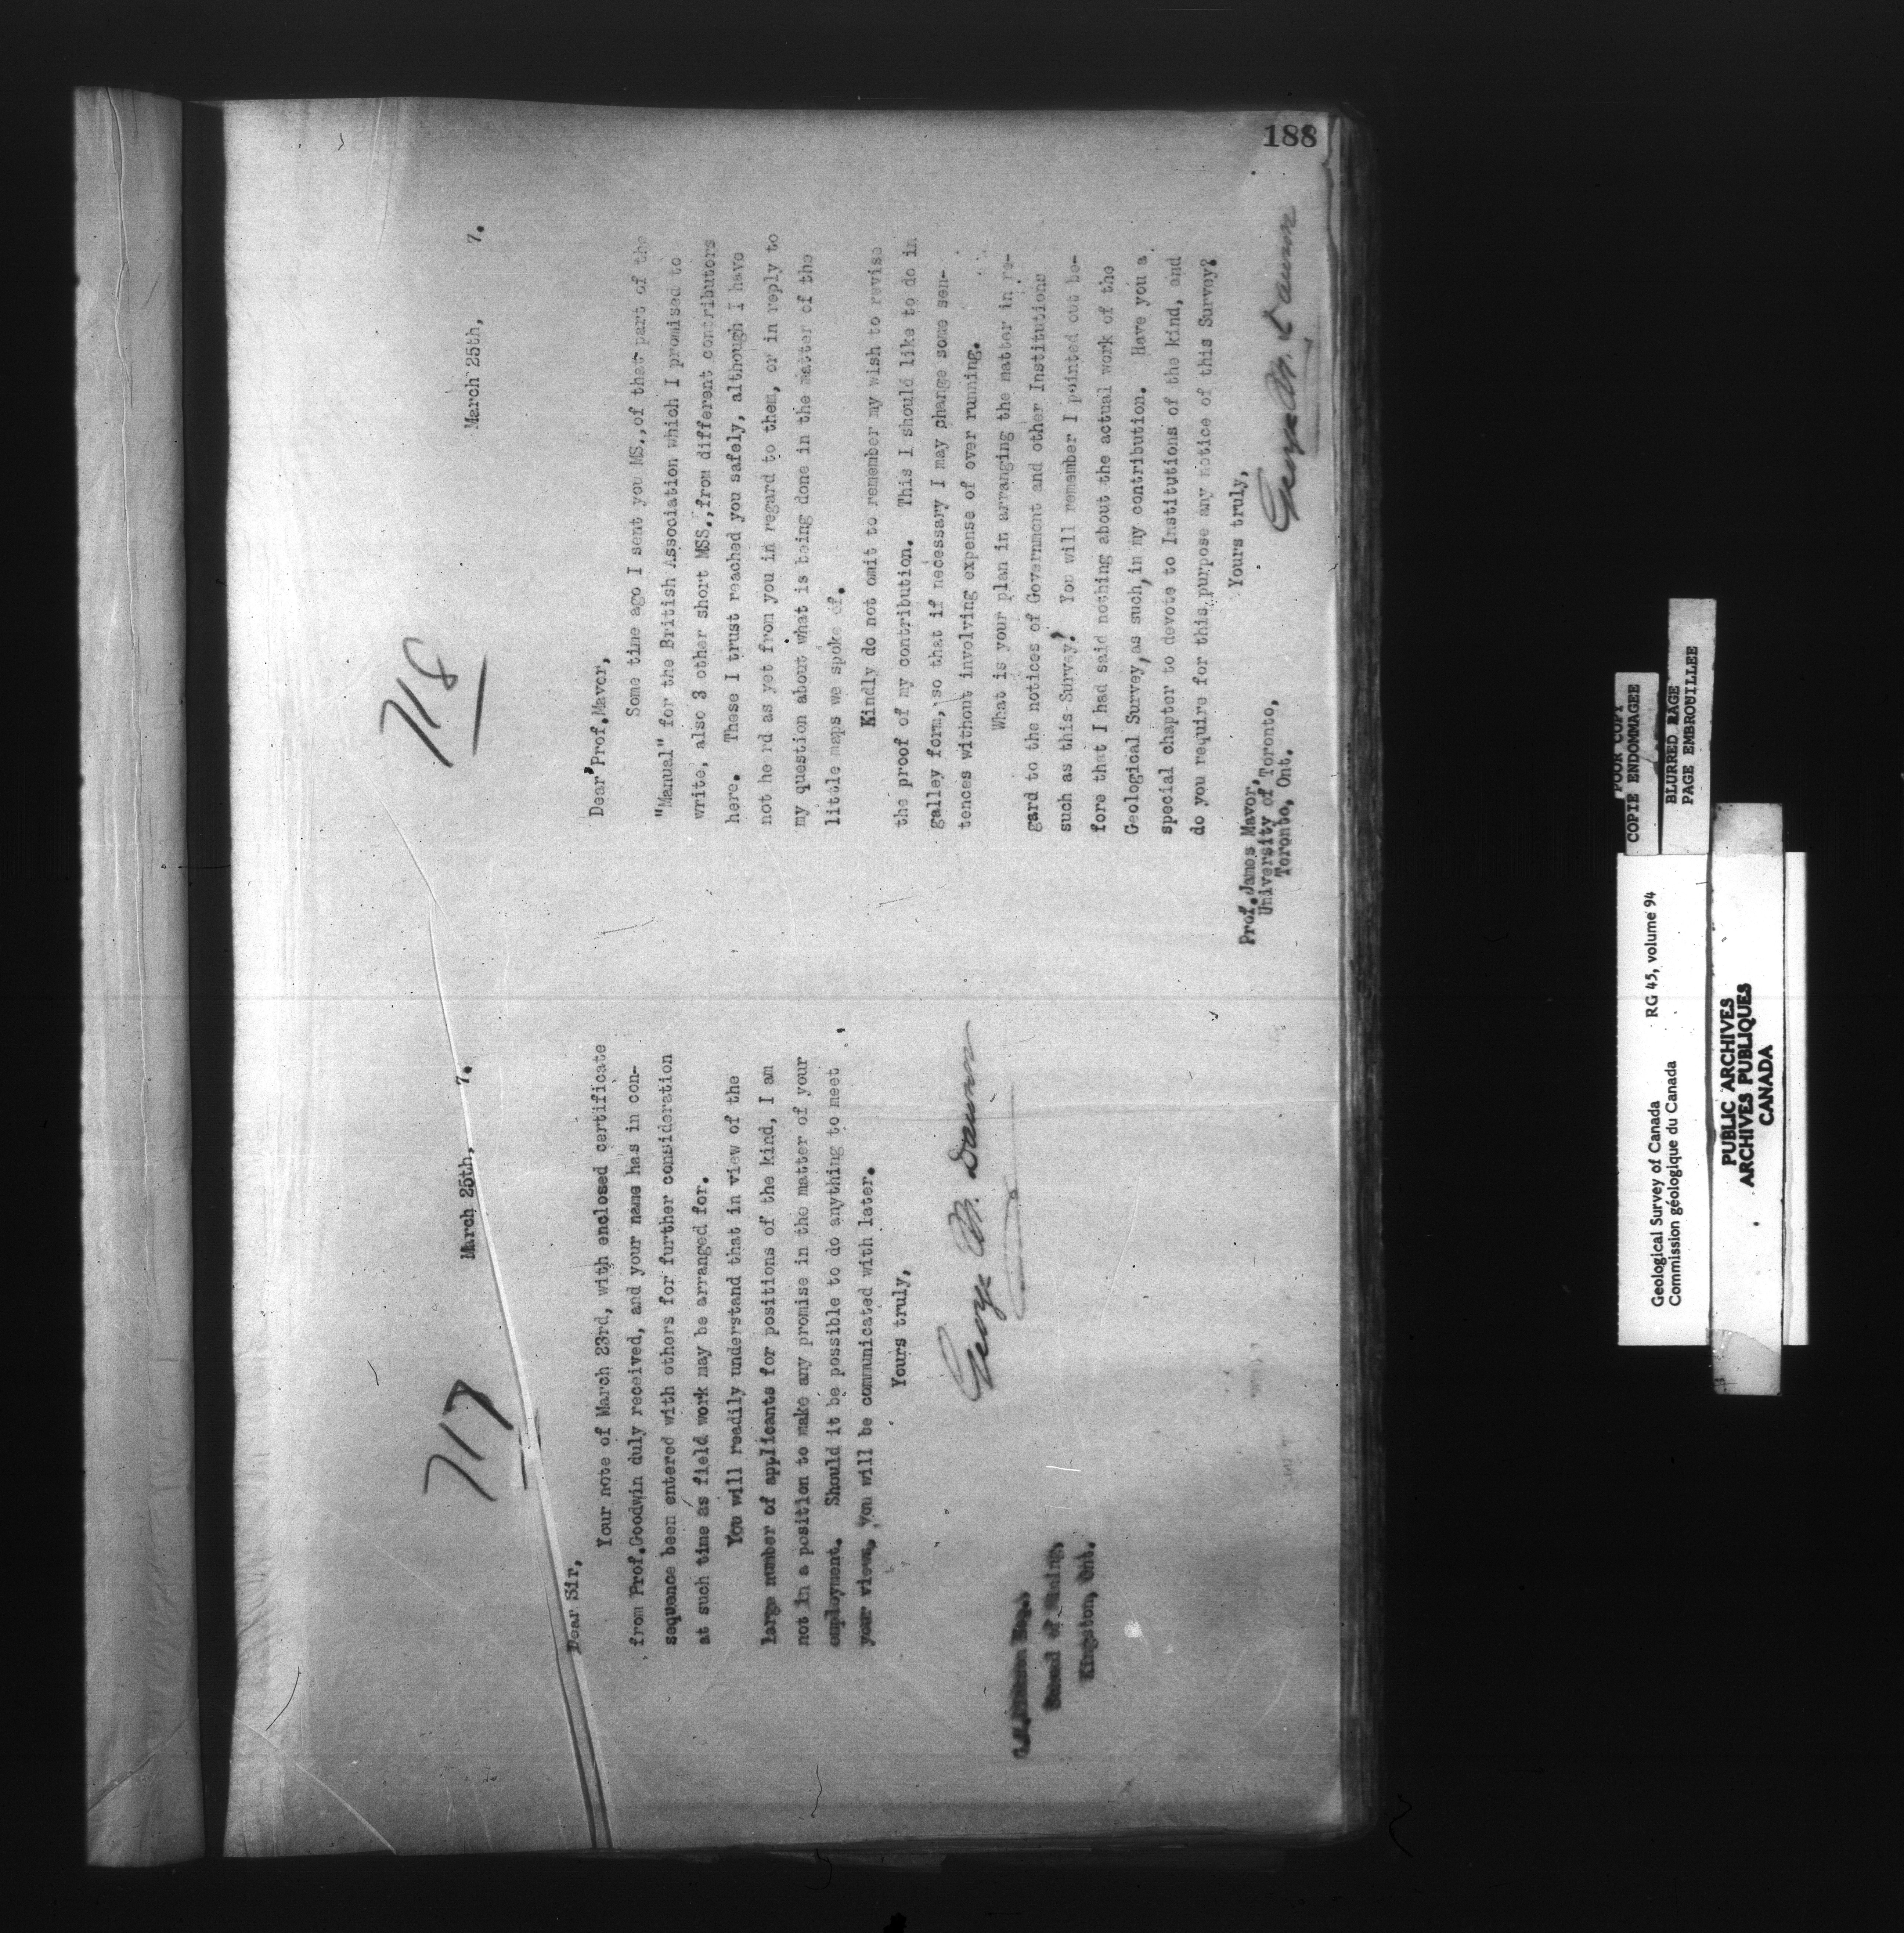 188
717
March 25th, 7.
Dear Sir,
Your note of March 23rd, with enclosed certificate
from Prof.Goodwin duly received, and your name has in con-
sequence been entered with others for further consideration
at such time as field work may be arranged for.
You will readily understand that in view of the
large number of applicants for positions of the kind, I am
not in a position to make any promise in the matter of your
employment. Should it be possible to do anything to meet
your views, you will be communicated with later.
Yours truly,
George M. Dawson
School of Mining,
Kingston, Ont.
718
March 25th, 7.
Dear Prof.Mavor,
Some time ago I sent you MS.,of that part of the
"Manual" for the British Association which I promised to
write, also 3 other short MSS.,from different contributors
here. These I trust reached you safely, although I have
not he rd as yet from you in regard to them, or in reply to
my question about what is being done in the matter of the
little maps we spoke of.
Kindly do not omit to remember my wish to revise
the proof of my contribution. This I should like to do in
galley form, so that if necessary I may change some sen-
tences without involving expense of over running.
What is your plan in arranging the matter in re-
gard to the notices of Government and other Institutions
such as this Survey? You will remember I pointed out be-
fore that I had said nothing about the actual work of the
Geological Survey,as such,in my contribution. Have you a
special chapter to devote to Institutions of the kind, and
do you require for this purpose any notice of this Survey?
Yours truly,
George M. Dawson
Prof.James Mavor,
University of Toronto,
Toronto, Ont.
POOR COPY
COPIE ENDOMMAGEE
BLURRED PAGE
PAGE EMBROUILLEE
Geological Survey of Canada RG 45, volume 94
Commission géologique du Canada
PUBLIC ARCHIVES
ARCHIVES PUBLIQUES
CANADA